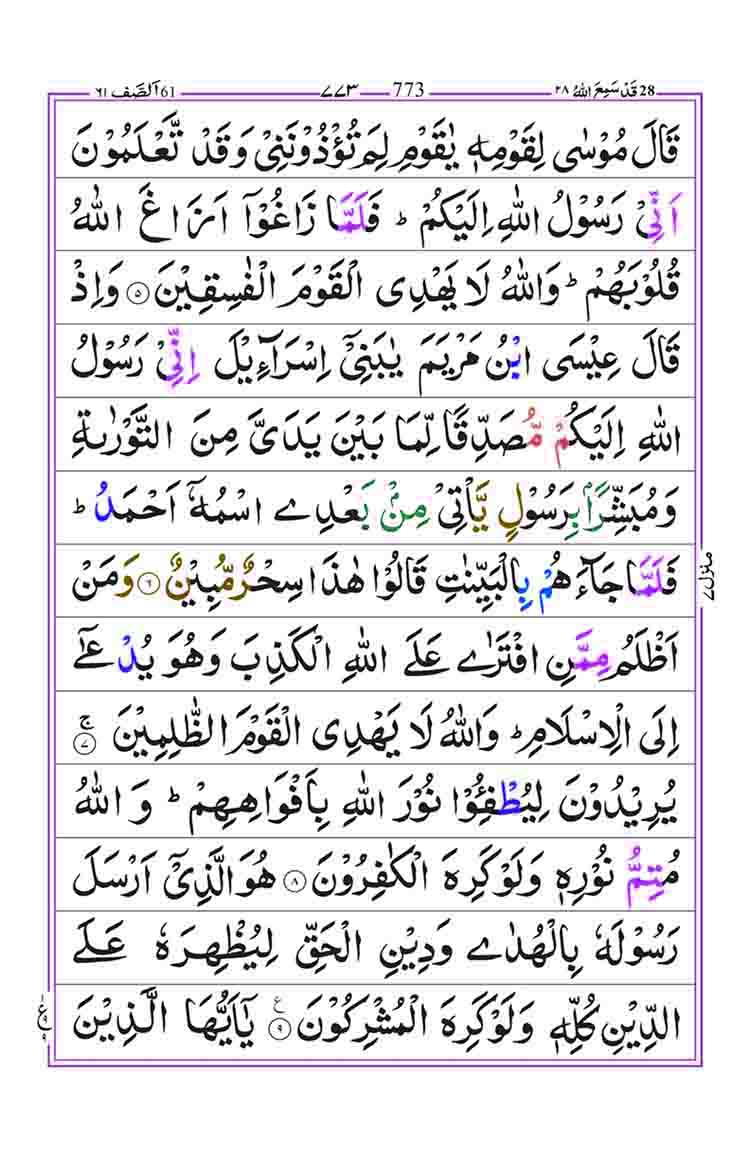 28 قَدْ سَمِعَ اللهُ ٢٨ 773 ٧٧٣ 61 اَلصَّف ٦١
قَالَ مُوْسٰى لِقَوْمِهٖ يٰقَوْمِ لِمَ تُؤْذُوْنَنِىْ وَقَدْ تَّعْلَمُوْنَ
اَنِّىْ رَسُوْلُ اللهِ اِلَيْكُمْ ؕ فَلَمَّا زَاغُوْۤا اَزَاغَ اللهُ
قُلُوْبَهُمْ ؕ وَاللهُ لَا يَهْدِى الْقَوْمَ الْفٰسِقِيْنَ ۝٥ وَاِذْ
قَالَ عِيْسَى ابْنُ مَرْيَمَ يٰبَنِىْۤ اِسْرَآءِيْلَ اِنِّىْ رَسُوْلُ
اللهِ اِلَيْكُمْ مُّصَدِّقًا لِّمَا بَيْنَ يَدَىَّ مِنَ التَّوْرٰىةِ
وَمُبَشِّرًۢا بِرَسُوْلٍ يَّاْتِىْ مِنْۢ بَعْدِى اسْمُهٗۤ اَحْمَدُ ؕ
فَلَمَّا جَآءَهُمْ بِالْبَيِّنٰتِ قَالُوْا هٰذَا سِحْرٌ مُّبِيْنٌ ۝٦ وَمَنْ
اَظْلَمُ مِمَّنِ افْتَرٰى عَلَى اللهِ الْكَذِبَ وَهُوَ يُدْعٰٓى
اِلَى الْاِسْلَامِ ؕ وَاللهُ لَا يَهْدِى الْقَوْمَ الظّٰلِمِيْنَ ۝٧ۚ
يُرِيْدُوْنَ لِيُطْفِـُٔوْا نُوْرَ اللهِ بِاَفْوَاهِهِمْ ؕ وَاللهُ
مُتِمُّ نُوْرِهٖ وَلَوْ كَرِهَ الْكٰفِرُوْنَ ۝٨ هُوَ الَّذِىْۤ اَرْسَلَ
رَسُوْلَهٗ بِالْهُدٰى وَدِيْنِ الْحَقِّ لِيُظْهِرَهٗ عَلَى
الدِّيْنِ كُلِّهٖ وَلَوْ كَرِهَ الْمُشْرِكُوْنَ ۝٩ ع يٰۤاَيُّهَا الَّذِيْنَ
منزل ٧